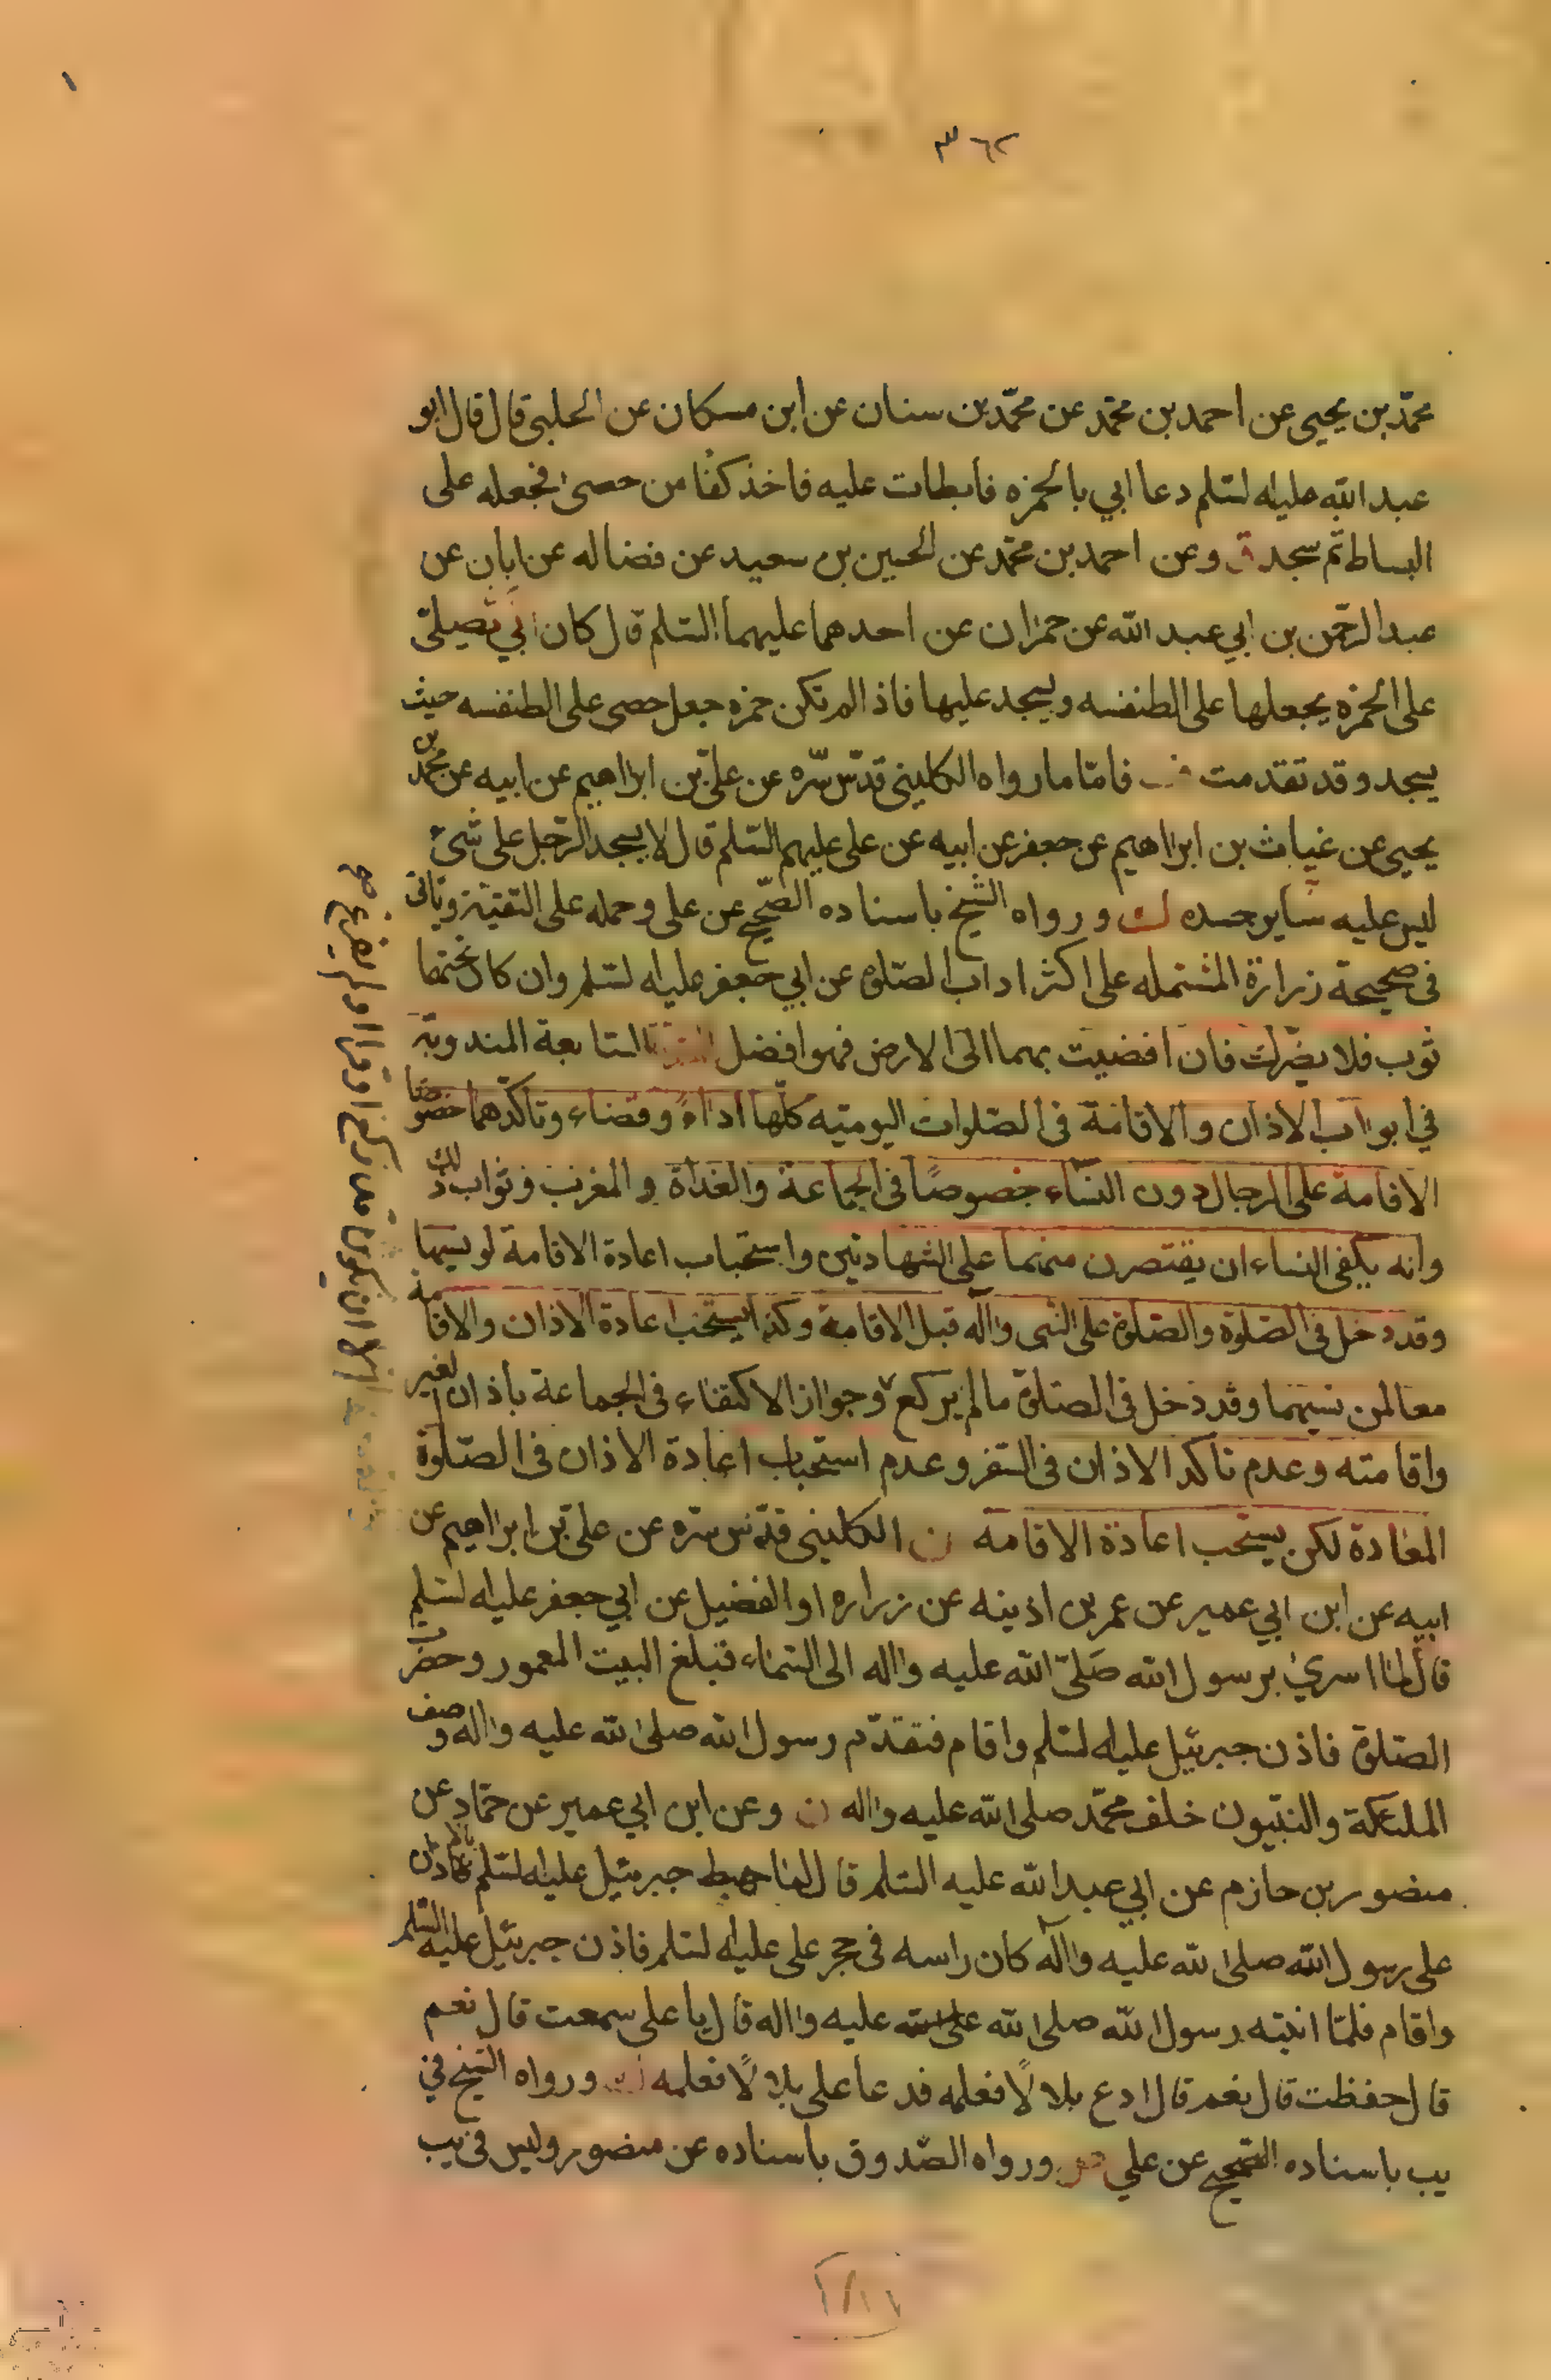 ٣٦٢
محمّد بن يحيى عن احمد بن محمّد عن محمّد بن سنان عن ابن مسكان عن الحلبى قال قال ابو
عبد الله عليه السلم دعا ابي بالخمره فابطات عليه فاخذ كفا من حصى فجعله على
البساط ثم سجد ق وعن احمد بن محمّد عن الحسين بن سعيد عن فضاله عن ابان عن
عبد الرحمن بن ابي عبد الله عن حمران عن احدهما عليهما السلم قال كان ابي يصلى
على الخمره يجعلها على الطنفسه ويسجد عليها فاذا لم تكن خمره جعل حصى على الطنفسه حيث
يسجد وقد تقدمت فامّا ما رواه الكلينى قدّس سّره عن علىّ بن ابراهيم عن ابيه عن محمّد بن
يحيى عن غياث بن ابراهيم عن جعفر عن ابيه عن على عليهم السلم قال لا يسجد الرّجل على شئ
ليس عليه ساير جسده ورواه الشيخ باسناده الصّحيح عن على وحمله على التقيّة وياتى
فى صحيحة زرارة المشتمله على اكثر اداب الصّلوة عن ابي جعفر عليه السلم وان كان تحتهما
ثوب فلا يضرّك فان افضيت بهما الى الارض فهو افضل السابعة المندوبة
في ابواب الاذان والاقامة فى الصّلوات اليوميّه كلّها اداءً وقضاء وتاكّدهما خصوصًا
الاقامة على الرجال دون النسّاء خصوصًا فى الجماعة والغداة والمغرب وثواب ذلك
وانه يكفى النساء ان يقتصرن منهما على الشهادتين واستحباب اعادة الاقامة لو نسيها
وقد دخل فى الصّلوة والصّلوة على النبى واله قبل الاقامة وكذا يستحب اعادة الاذان والاقامة
معا لمن نسيهما وقد دخل فى الصّلوة ما لم يركع وجواز الاكتفاء فى الجماعة باذان الغير
واقامته وعدم تاكد الاذان فى السّفر وعدم استحباب اعادة الاذان فى الصّلوة
المعادة لكن يستحب اعادة الاقامه ن الكلينى قدّس سّره عن علىّ بن ابراهيم عن
ابيه عن ابن ابي عمير عن عمر بن اذينه عن زراره او الفضيل عن ابي جعفر عليه السلم
قال لما اسرى برسول الله صَلىّ الله عليه واله الى السّماء فبلغ البيت المعمور وحضرت
الصّلوة فاذن جبرئيل عليه السلم واقام فتقدّم رسول الله صلى الله عليه واله وصف
الملئكة والنبيّون خلف محمّد صلى الله عليه واله ن وعن ابن ابي عمير عن حمّاد عن
منصور بن حازم عن ابي عبد الله عليه السلم قال لما هبط جبرئيل عليه السلم بالاذان
على رسول الله صلى الله عليه واله كان راسه فى حجر على عليه السلم فاذن جبرئيل عليه السلم
واقام فلمّا انتبه رسول الله صلى الله عليه واله قال يا على سمعت قال نعم
قال حفظت قال نعم قال ادع بلالًا فعلمه فدعا على بلالًا فعلمه ورواه الشيخ في
يب باسناده الصّحيح عن علي ورواه الصّدوق باسناده عن منصور وليس فى يب